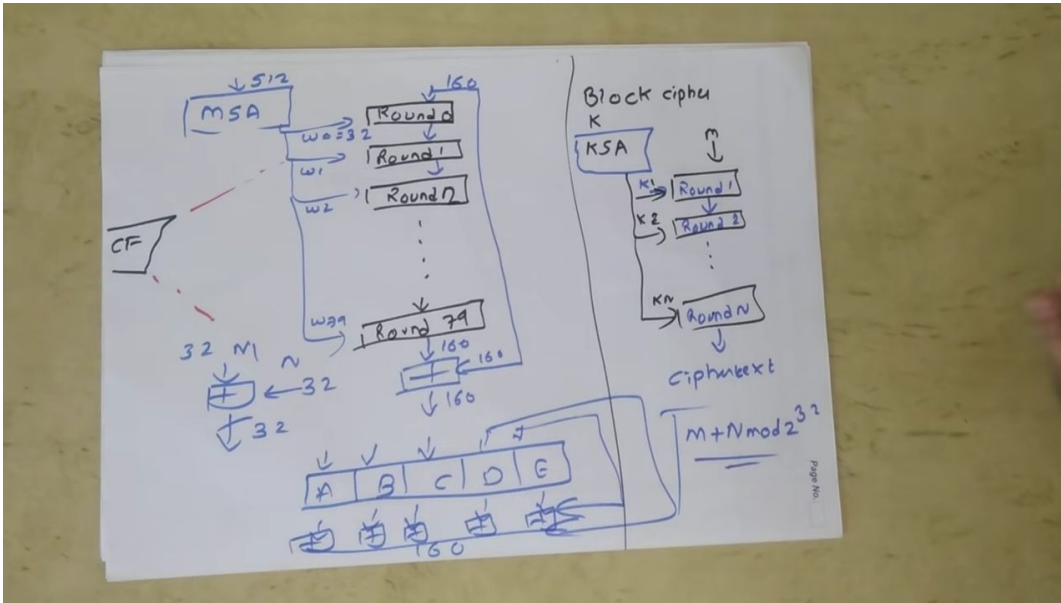 512
MSA
160
Round 0
W0=32
Round 1
W1
Round 2
W2
CF
W79
Round 79
160
160
160
32 M
N
32
32
A B C D E
160
Block cipher
K
KSA
M
K1
Round 1
K2
Round 2
KN
Round N
Ciphertext
M+N mod 2^32
Page No.